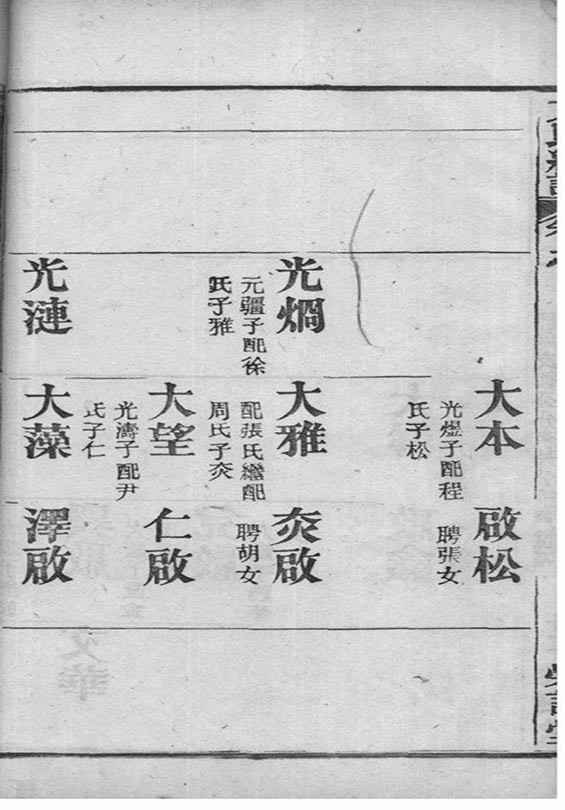 光烱
元疆子配徐
氏子雅
光漣
大本
光煜子配程
氏子松
大雅
配張氏繼配
周氏子炎
大望
光濤子配尹
氏子仁
大藻
啟松
聘張女
炎啟
聘胡女
仁啟
澤啟